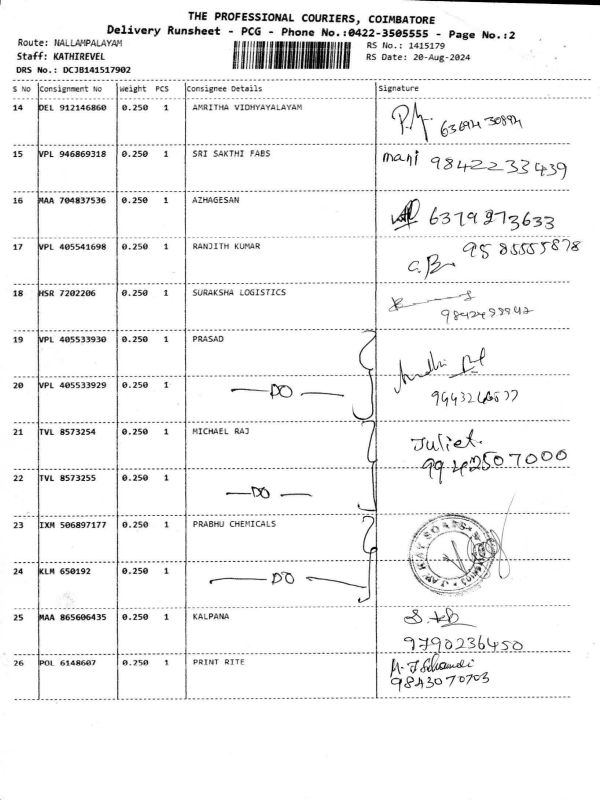 THE PROFESSIONAL COURIERS, COIMBATORE
Delivery Runsheet - PCG - Phone No.:0422-3505555 - Page No.:2
Route: NALLAMPALAYAM
RS No.: 1415179
Staff: KATHIREVEL
RS Date: 20-Aug-2024
DRS No.: DCJB141517902
S No Consignment No Weight PCS Consignee Details Signature
14 DEL 912146860 0.250 1 AMRITHA VIDHYAYALAYAM
15 VPL 946869318 0.250 1 SRI SAKTHI FABS mani 9842233439
16 MAA 704837536 0.250 1 AZHAGESAN 6379273633
17 VPL 405541698 0.250 1 RANJITH KUMAR 9585555878
18 HSR 7202206 0.250 1 SURAKSHA LOGISTICS
19 VPL 405533930 0.250 1 PRASAD
20 VPL 405533929 0.250 1 DO
21 TVL 8573254 0.250 1 MICHAEL RAJ Juliet.
9942507000
22 TVL 8573255 0.250 1 DO
23 IXM 506897177 0.250 1 PRABHU CHEMICALS
24 KLM 650192 0.250 1 DO
25 MAA 865606435 0.250 1 KALPANA
9790236450
26 POL 6148607 0.250 1 PRINT RITE
9843070703